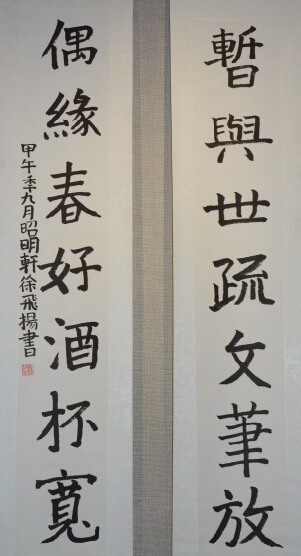 暫與世疏文筆放
偶緣春好酒杯寬
甲午年九月昭明軒徐飛揚書